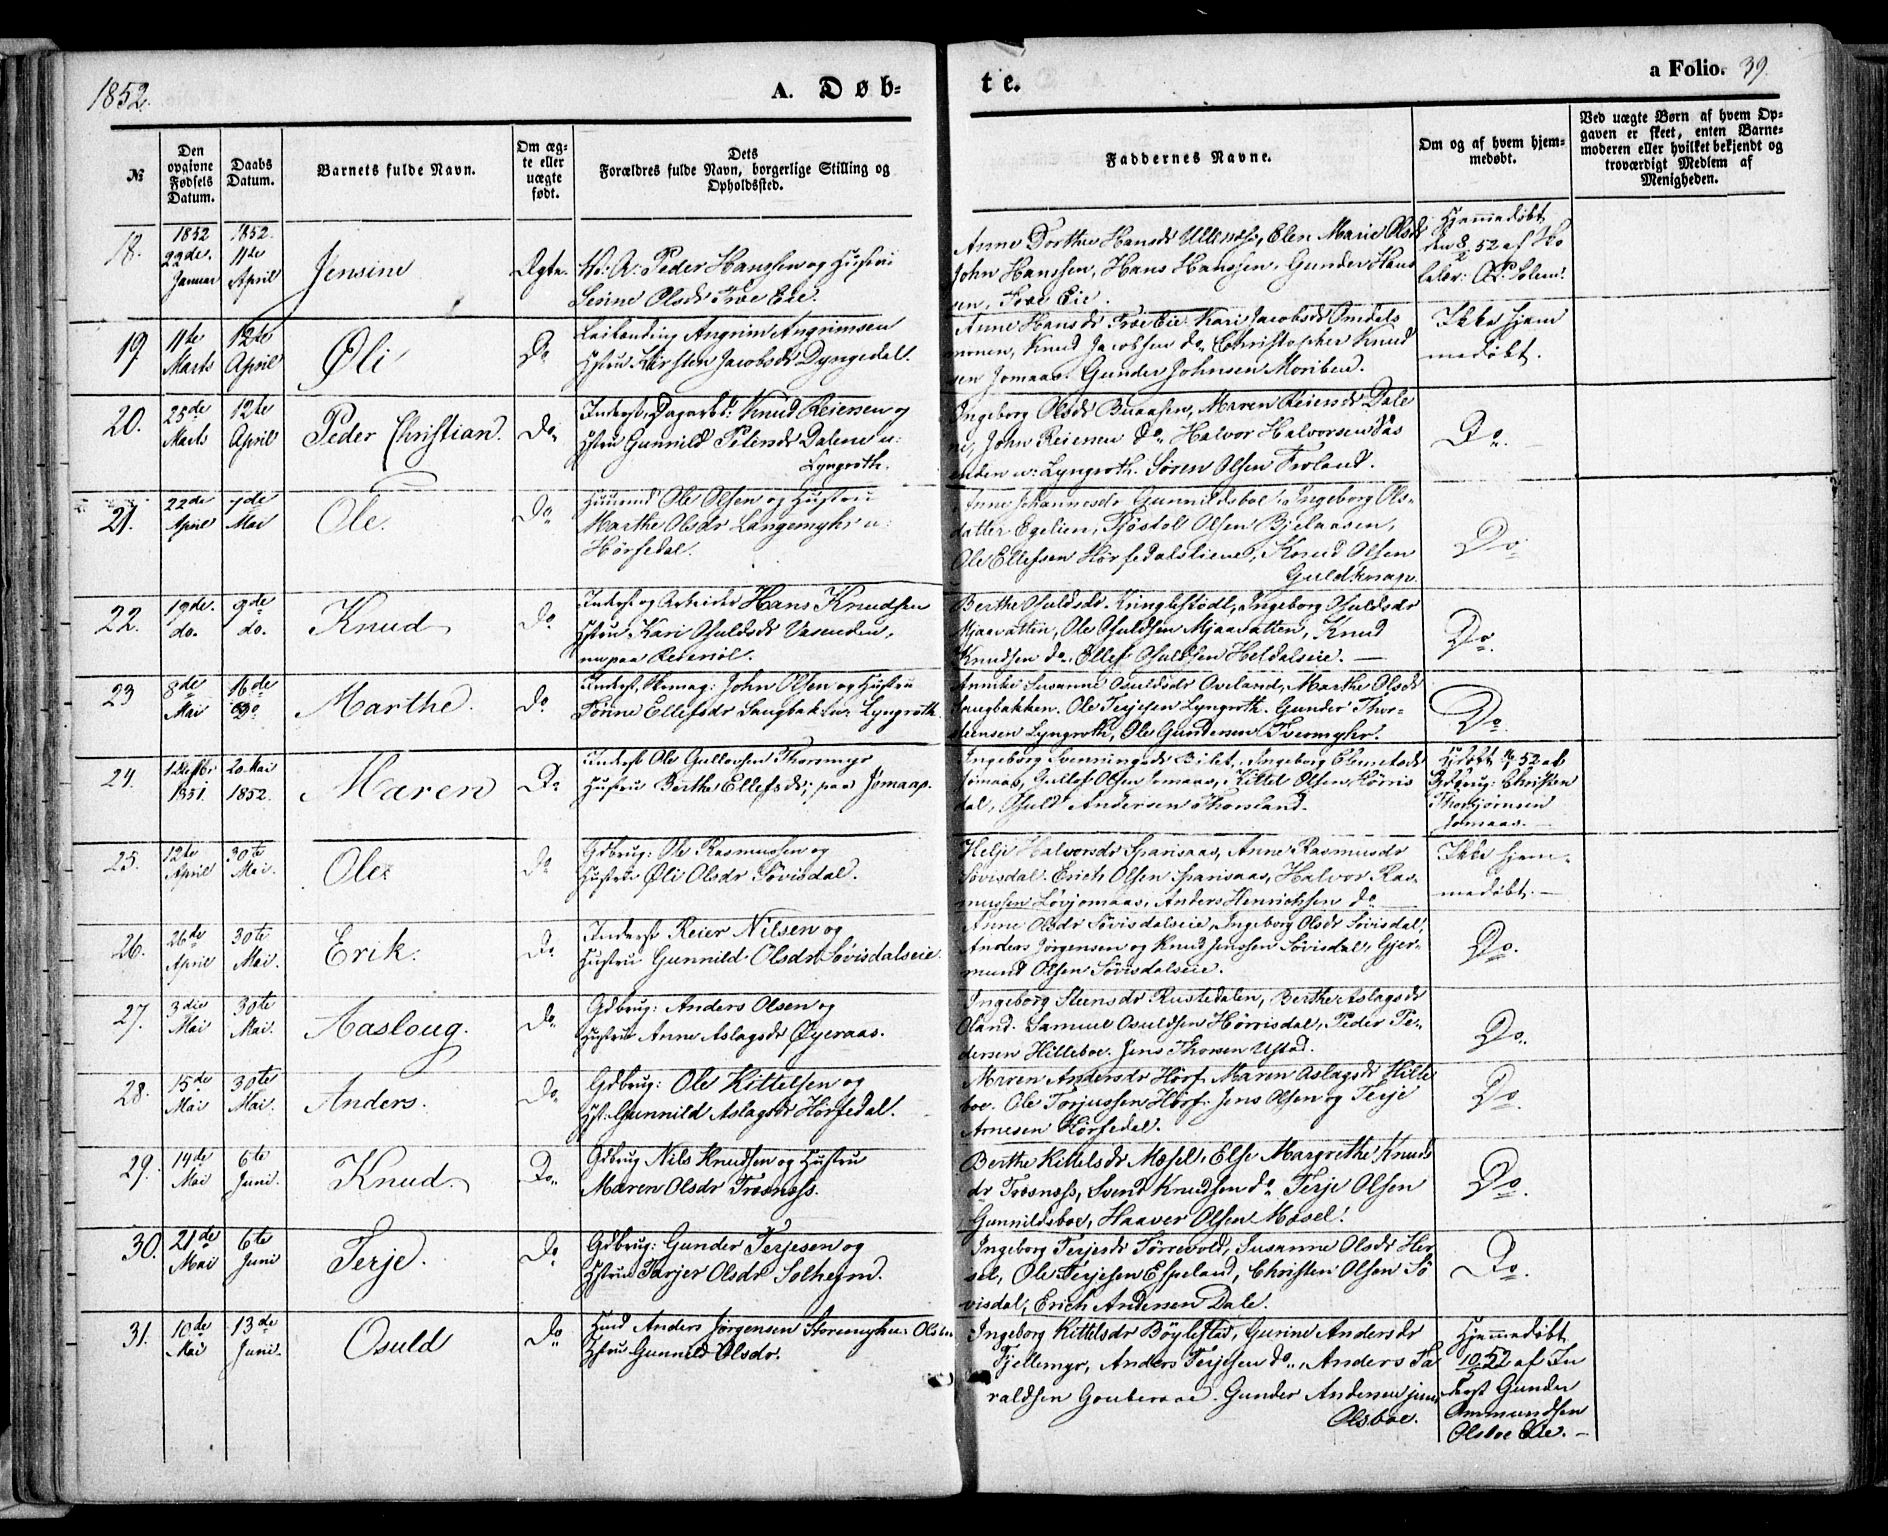 1852.
A. Døb-
te.
a Folio. 39.
№
Den opgivne Fødsels Datum.
Daabs Datum.
Barnets fulde Navn.
Om ægte eller uægte født.
Dets Forældres fulde Navn, borgerlige Stilling og Opholdssted.
Faddernes Navne.
Om og af hvem hjemmedøbt.
Ved uægte Børn af hvem Opgaven er skeet, enten Barnemoderen eller hvilket bekjendt og troværdigt Medlem af Menigheden.
18.
1852 22de. Januar
1852. 11te April
Jensine
Ægte.
Peder Hanssen og Hustru
Sevine Olsdr Froe Eie.
Anne Dorthea Hansdr Ullenæs, Elen Marie Olsdr
John Hanssen, Hans Hanssen, Gunder Hans
sen, Froe Eie.
Hjemmedøbt
den 8/2 52 af
19
11te Marts
12te April
Øli
Do
Leilending Angrim Angrimsen
Hstru Kirsten Jacobsdr Dyngedal.
Anne Hansdr Froe Eie. Kari Jacobsdr Omdals
monen, Knud Jacobsen do. Christopher Knud
sen Jomaas. Gunder Johnsen Moriben.
Ikke hjem
medøbt.
20.
25de Marts
12te April
Peder Christian.
Do.
Inderst, Dagarbd: Knud Reiersen og
Hstru Gunnild Petersdr Dalene u:
Lyngroth.
Ingeborg Olsdr Buaasen, Maren Reiersdr Dale
ne, John Reiersen do. Halvor Halvorsen Aas
enden u: Lyngroth. Søren Olsen Froland.
Do.
21.
22de April
1de Mai
Ole.
Do
Huusmd Ole Olsen og Hustru
Marthe Olsdr Langemyhr u:
Hørsedal.
Anne Johannesdr Gunnildsboe. Ingeborg Ols-
datter Egelien, Tjøstol Olsen Bjelaasen,
Ole Ellefsen Hørsedalsliene, Knud Olsen
Guldknap.
Do.
22.
19de. do.
9de do.
Knud
Do
Inderst og Arbeider Hans Knudsen
Hstru Kari Osuldsdr Vasenden,
nu paa Reiersøl.
Berthe Osuldsdr Kringlestødt, Ingeborg Osuldsdr
Mjaavatten, Ole Osuldsen Mjaavatten, Knud
Knudsen do. Ellef Osuldsen Heldalseie. —
Do.
23
8de Mai
16de do
Marthe.
Do
Inderst, John Olsen og Hustru
Tonne Ellefsdr Saugbak u: Lyngroth.
Annike Susanne Osuldsdr Aveland, Marthe Olsdr
Saugbakken. Ole Terjesen Lyngroth. Gunder Thor-
steensen Lyngroth, Ole Gundersen Tvermyhr.
Do
24.
12te 1851.
20 Mai 1852.
Maren
Do
Inderst Ole Gullovsen Thorsmyr
Hustru Berthe Ellefsdr; paa Jomaas.
Ingeborg Svenningsdr Bilet, Ingeborg Clemetsdr
Jomaas, Gullef Olsen Jomaas, Kittel Olsen Hørris
dal, Osuld Andersen Thorsland.
52 af
Gdbrug: Christen
Thorbjørnsen
Jomaas. —
25.
12te April
30te Mai.
Ole
Do
Gdbrug: Ole Rasmussen og
Hustru Øli Olsdr Søvisdal.
Helje Halvorsdr Sparisaas, Anne Rasmusdr
Søvisdal. Erich Olsen Sparisaas, Halvor Ras-
mussen Løvjomaas, Anders Henrichsen do
Ikke hjem-
medøbt. —
26.
26de April
30te Mai.
Erik.
Do
Inderst Reier Nilsen og
Hustru Gunnild Olsdr Søvisdalseie.
Anne Olsdr Søvisdalseie, Ingeborg Olsdr Søvisdal,
Anders Jørgensen og Knud Jenssen Søvisdal, Gjer-
mund Olsen Søvisdalseie.
Do.
27.
3die Mai
30te Mai.
Aasloug.
Do.
Gdbrug: Anders Olsen og
Hustru Anne Aslagsdr Øyeraas.
Ingeborg Steensdr Rustedalen, Berthe Aslagsdr
Oland. Samuel Osuldsen Hørrisdal, Peder Pe-
dersen Hilleboe. Jens Thorsen Ustad.
Do.
28.
15de Mai
30te Mai.
Anders.
Do.
Gdbrug: Ole Kittelsen og
Hst: Gunnild Aslagsdr Hørsedal.
Maren Andersdr Hørs. Maren Aslagsdr Hille
boe. Ole Torjussen Hørs. Jens Olsen og Terje
Arnesen Hørsedal.
Do.
29.
14de Mai
6te Juni.
Knud.
Do.
Gdbrug Nils Knudsen og Hustru
Maren Olsdr Trosness.
Berthe Kittelsdr Mæsel, Else Margrethe Knuds
dr Trosness, Svend Knudsen do. Terje Olsen
Gunnildsboe, Haaver Olsen Mæsel.
Do.
30.
21de Mai
6te Juni
Terje.
Do.
Gdbrug: Gunder Terjesen og
Hstru Tarjer Olsdr Solhegnd.
Ingeborg Terjesdr Tørrevold, Susanne Olsdr Her
sel, Ole Terjesen Espeland, Christen Olsen Sø
visdal, Erich Andersen Dale.
Do.
31.
10de Mai
13de Juni.
Osuld
Do
Husmd Anders Jørgensen Storemyhr u: Olsboe
Hstru Gunnild Olsdr.
Ingeborg Kittelsdr Bøylestad, Gurine Andersdr
Fjellemyr, Anders Terjesen do., Anders Ta
raldsen Gouteraae. Gunder Andersen jun.
Olsboe.
Hjemmedøbt
10/5 52 af In
derst Gunder
Ommundsen
Olsboe Eie. —